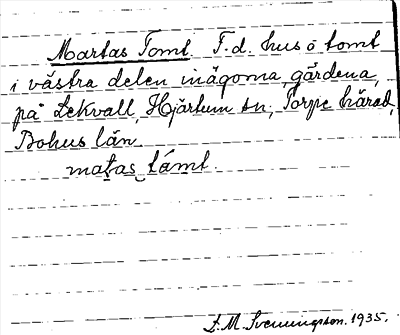 Martas Tomt. F.d. hus o tomt
i västra delen inägorna, gärdena,
på Lekvall, Hjärtum sn, Torpe härad,
Bohus län.
matas támt
D.M. Svenningson. 1935.